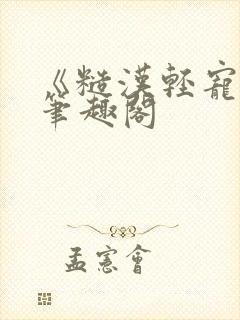 《糙漢輕寵
筆趣閣
孟憲會